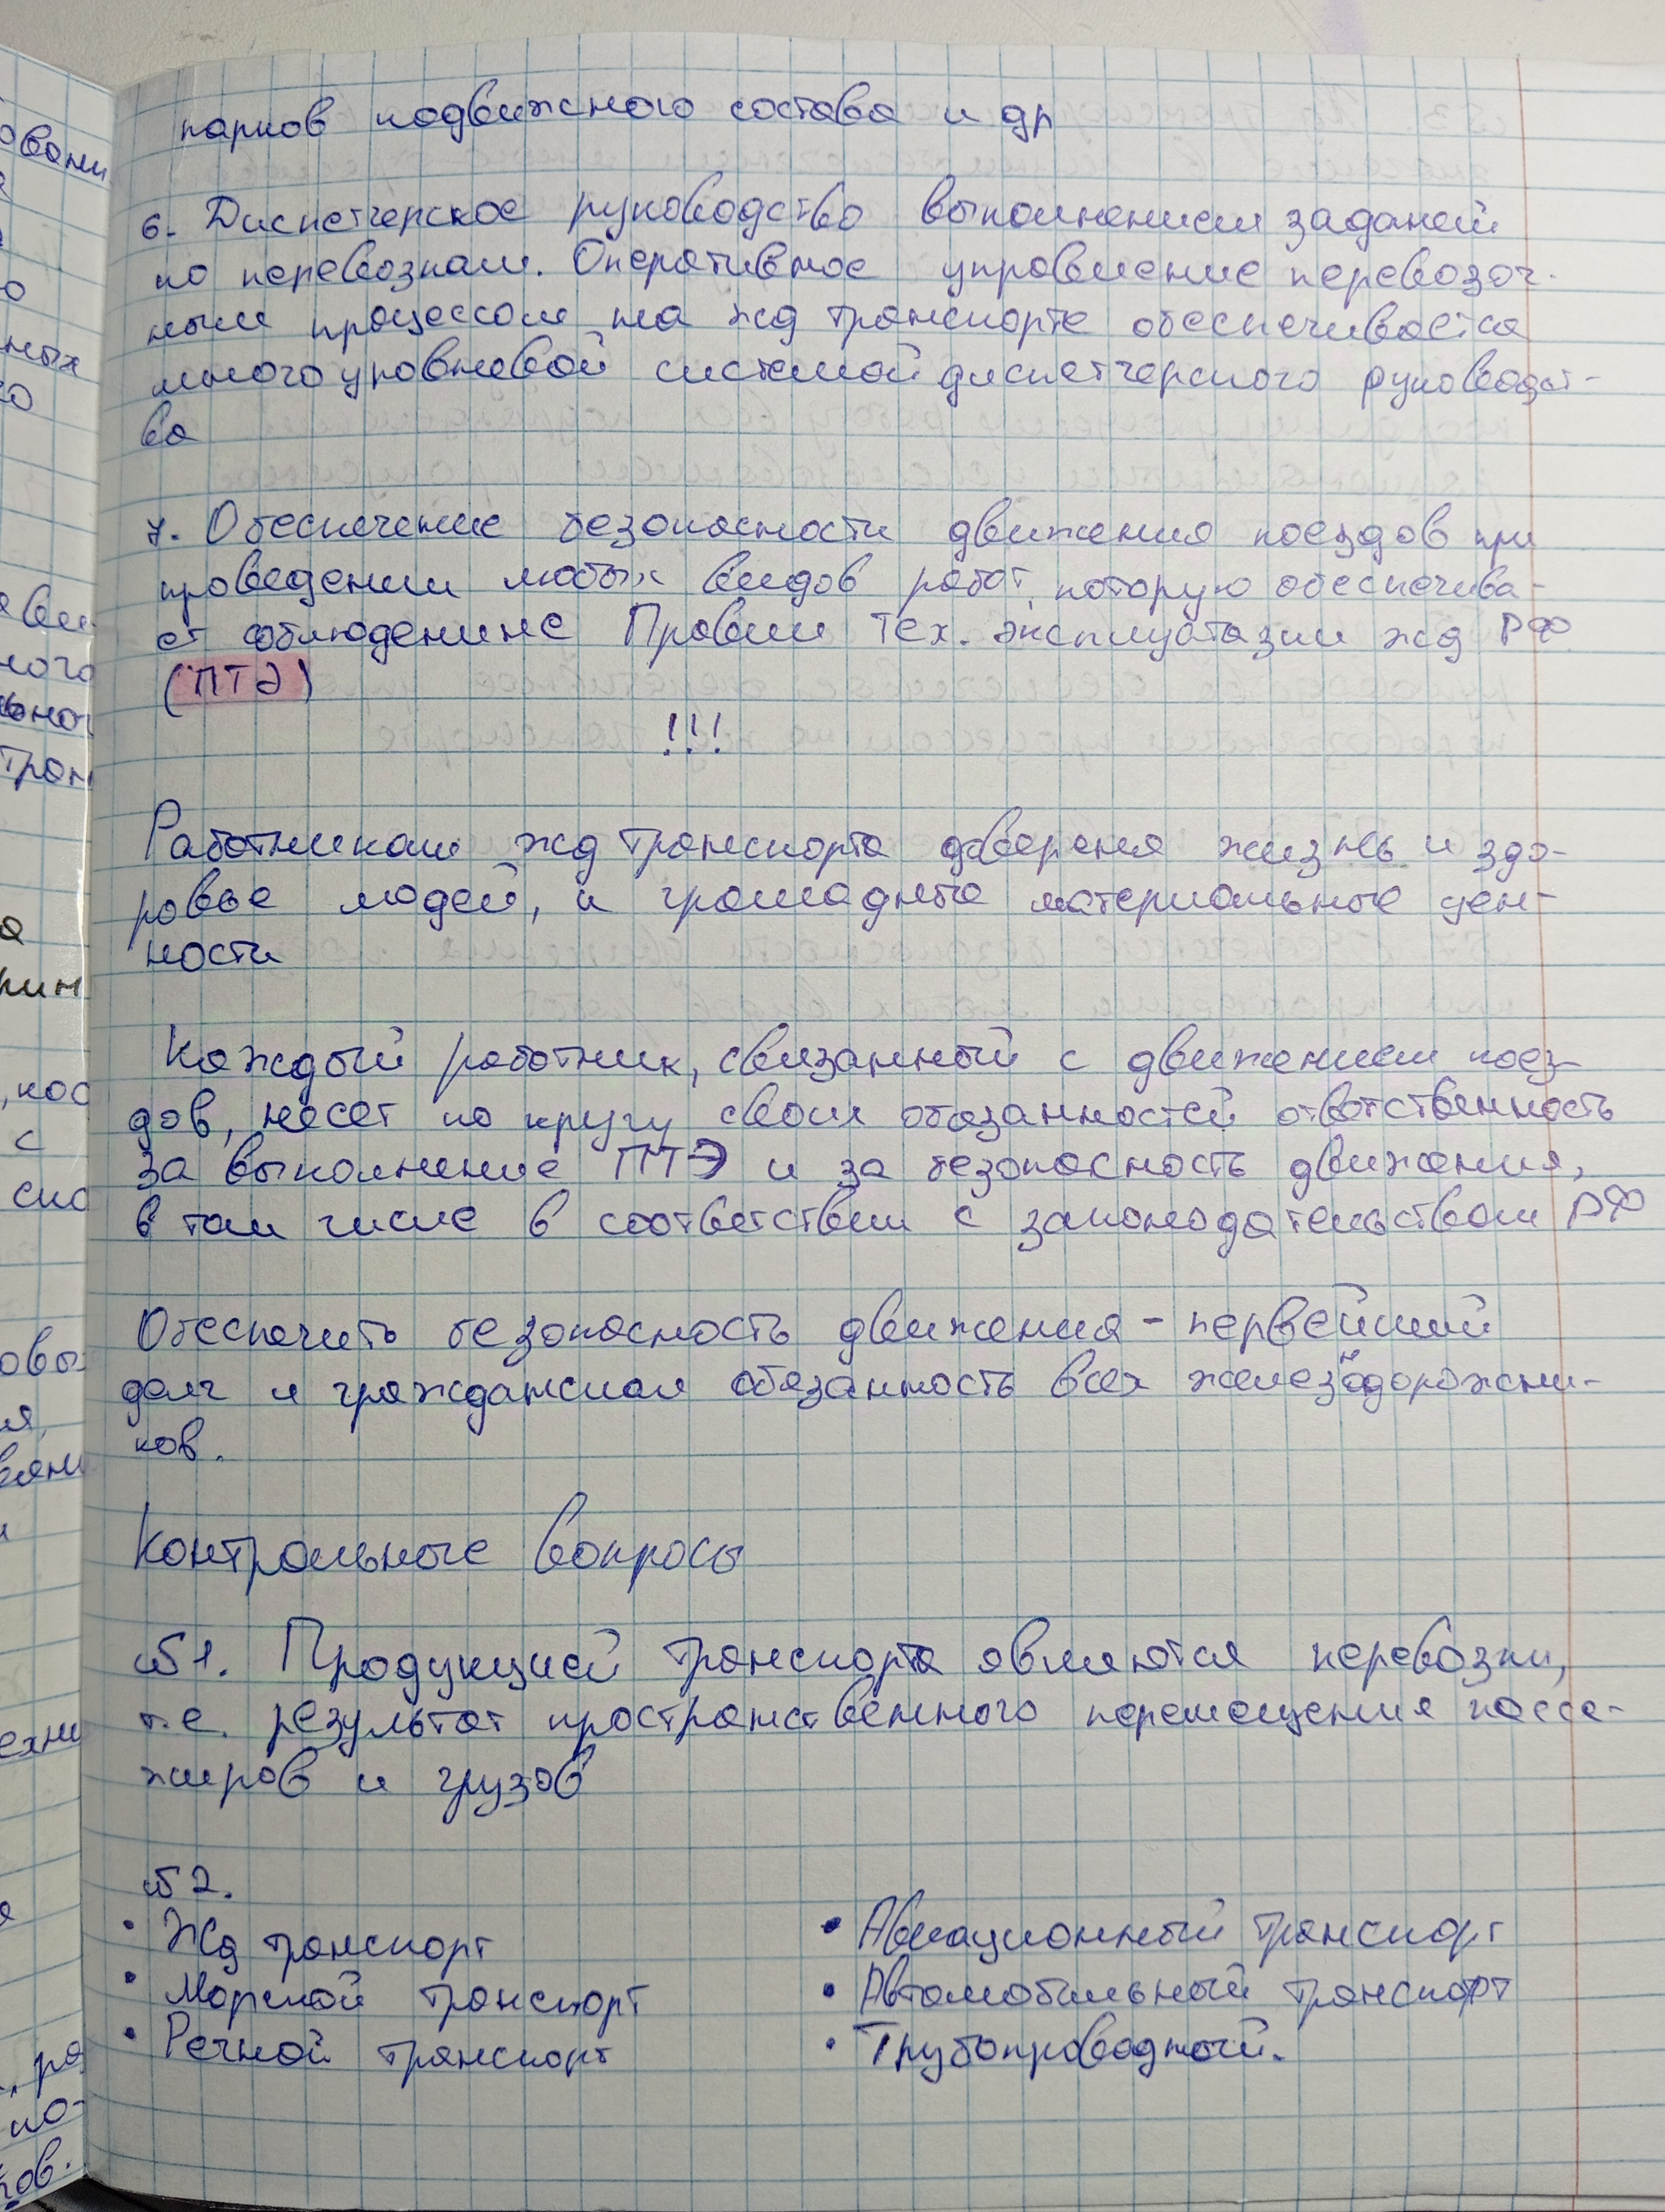 парков подвижного состава и др
6. Диспетчерское руководство выполнением заданий
по перевозкам. Оперативное управление перевозоч-
ным процессом на жд транспорте обеспечивается
многоуровневой системой диспетчерского руководст-
ва
7. Обеспечение безопасности движения поездов при
проведении любых видов работ, которую обеспечива-
ет соблюдениие Правил Тех. эксплуатазии жд РФ
(ПТЭ)
!!!
Работникам жд транспорта доверена жизнь и здо-
ровье людей, и громадные материальные цен-
ности
Каждый работник, связанный с движением поез-
дов, несет по кругу своих обязанностей ответственность
за выполнение ПТЭ и за безопасность движения,
в том числе в соответствии с законодательством РФ
Обеспечить безопасность движения - первейший
долг и гражданская обязанность всех железнодорожни-
ков.
Контрольные вопросы
№1. Продукцией транспорта являются перевозки,
т.е. результат пространственного перемещения пасса-
жиров и грузов
№2.
• Жд транспорт
• Морской транспорт
• Речной транспорт
• Авиационный транспорт
• Автомобильный транспорт
• Трубопроводный.